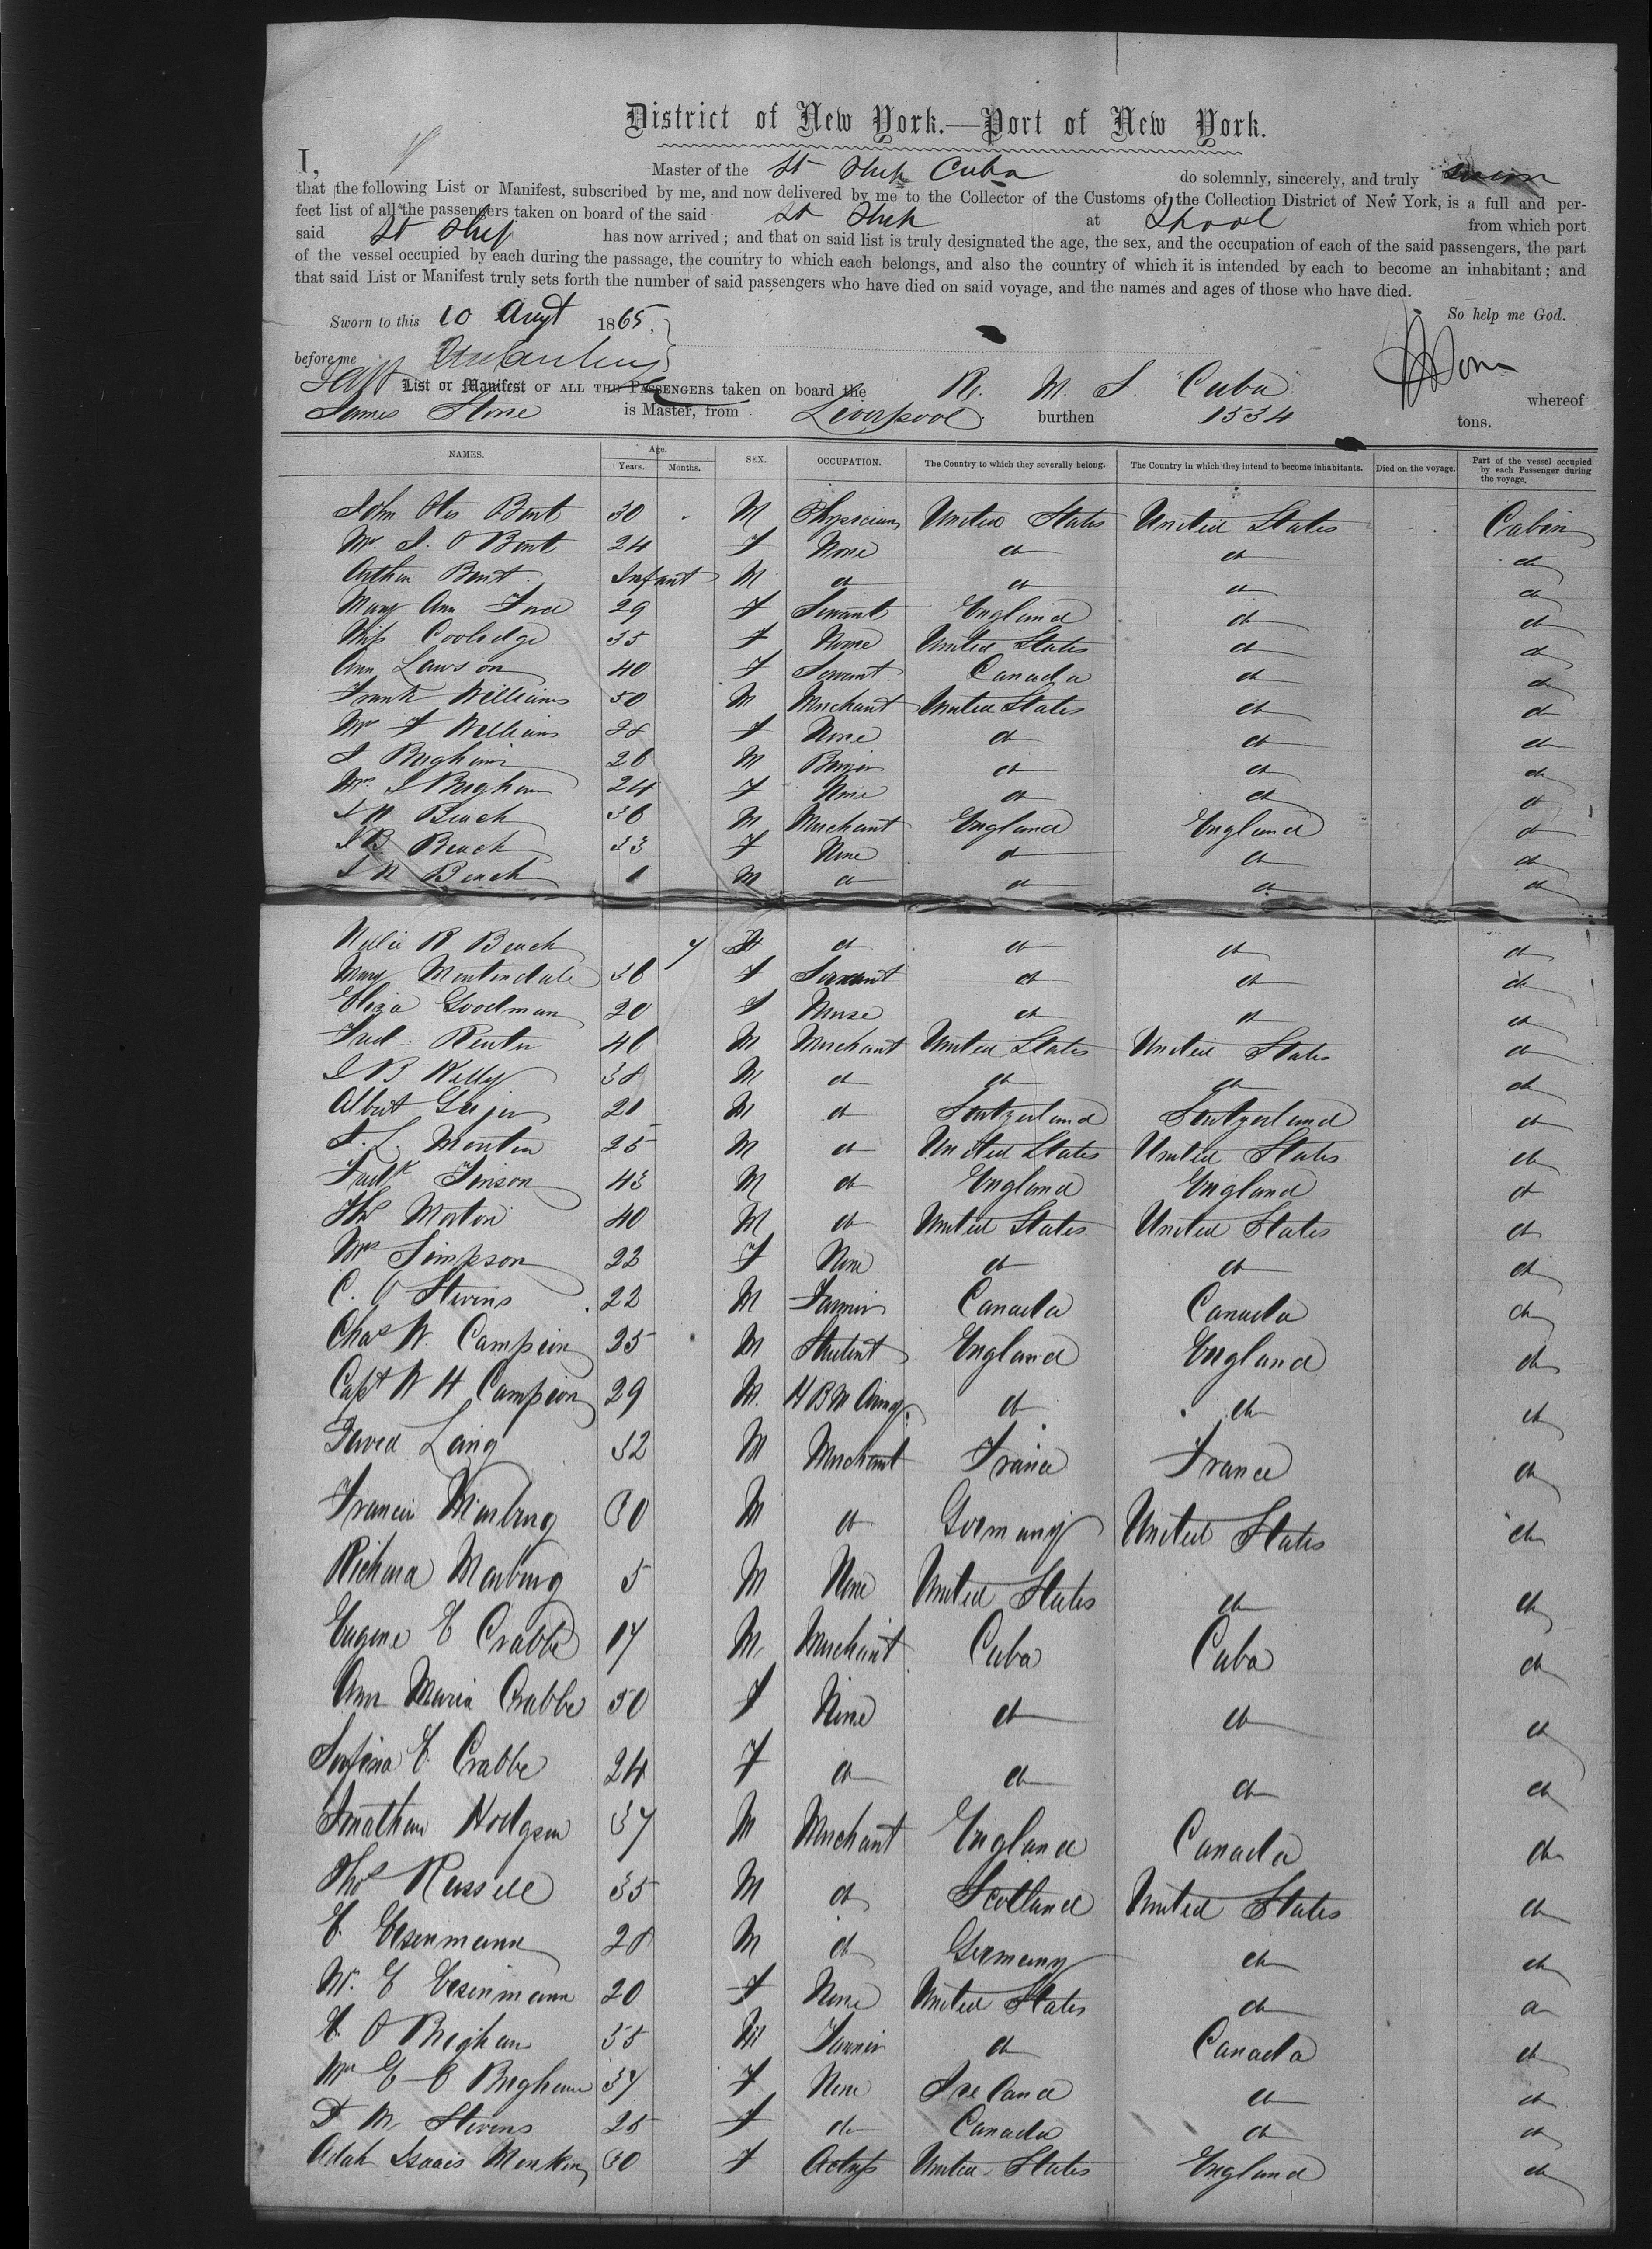 District of New York.—Port of New York.
I, Master of the St Ship Cuba do solemnly, sincerely, and truly swear
that the following List or Manifest, subscribed by me, and now delivered by me to the Collector of the Customs of the Collection District of New York, is a full and per-
fect list of all the passengers taken on board of the said St Ship at Lpool from which port
said St Ship has now arrived; and that on said list is truly designated the age, the sex, and the occupation of each of the said passengers, the part
of the vessel occupied by each during the passage, the country to which each belongs, and also the country of which it is intended by each to become an inhabitant; and
that said List or Manifest truly sets forth the number of said passengers who have died on said voyage, and the names and ages of those who have died.
So help me God.
Sworn to this 10 Augt 1865.
before me
List or Manifest OF ALL THE PASSENGERS taken on board the R. M. S. Cuba whereof
James Stone is Master, from Liverpool burthen 1534 tons.
NAMES. Age. Years. Months. SEX. OCCUPATION. The Country to which they severally belong. The Country in which they intend to become inhabitants. Died on the voyage. Part of the vessel occupied by each Passenger during the voyage.
John Otis Bent 30 M Physician United States United States Cabin
Mrs J. O Bent 24 F None do do do
Arthur Bent Infant M do do do do
Mary Ann Ford 29 F Servant England do do
Miss Coolidge 35 F None United States do do
Ann Lawson 40 F Servant Canada do do
Frank Williams 50 M Merchant United States do do
Mrs F Williams 28 F None do do do
J Brigham 26 M do do do
Mrs J Brigham 24 F None do do do
36 M Merchant England England do
J B Beach 33 F None do do do
Beach 1 M do do do do
Nellie R Beach 7 F do do do do
Mary Martindale 36 F Servant do do do
Eliza Goodman 20 F Nurse do do do
Fred. 46 M Merchant United States United States do
J B Kelly 38 M do do do do
Albert 21 M do Switzerland Switzerland do
25 M do United States United States do
Fredk Tinson 43 M do England England do
Thos Morton 40 M do United States United States do
Mrs Simpson 22 F None do do do
C. O Stevens 22 M Farmer Canada Canada do
Chas W. Campion 25 M Student England England do
Capt W H Campion 29 M. H B M Army do do do
David Laing 32 M Merchant France France do
Francis Marburg 30 M do Germany United States do
Richard Marburg 5 M None United States do do
Eugene E Crabbe 17 M Merchant Cuba Cuba do
Ann Maria Crabbe 50 F None do do do
E. Crabbe 24 F do do do do
Jonathan Hodgson 37 M Merchant England Canada do
Thos Russell 35 M do Scotland United States do
E. Eisenmann 28 M do Germany do do
Mrs. E Eisenmann 20 F None United States do do
E O Brigham 55 M Farmer do Canada do
Mrs E O Brigham 37 F None Ireland do do
M. Stevens 25 F do Canada do do
Adah Isaacs Menken 30 F Actress United States England do